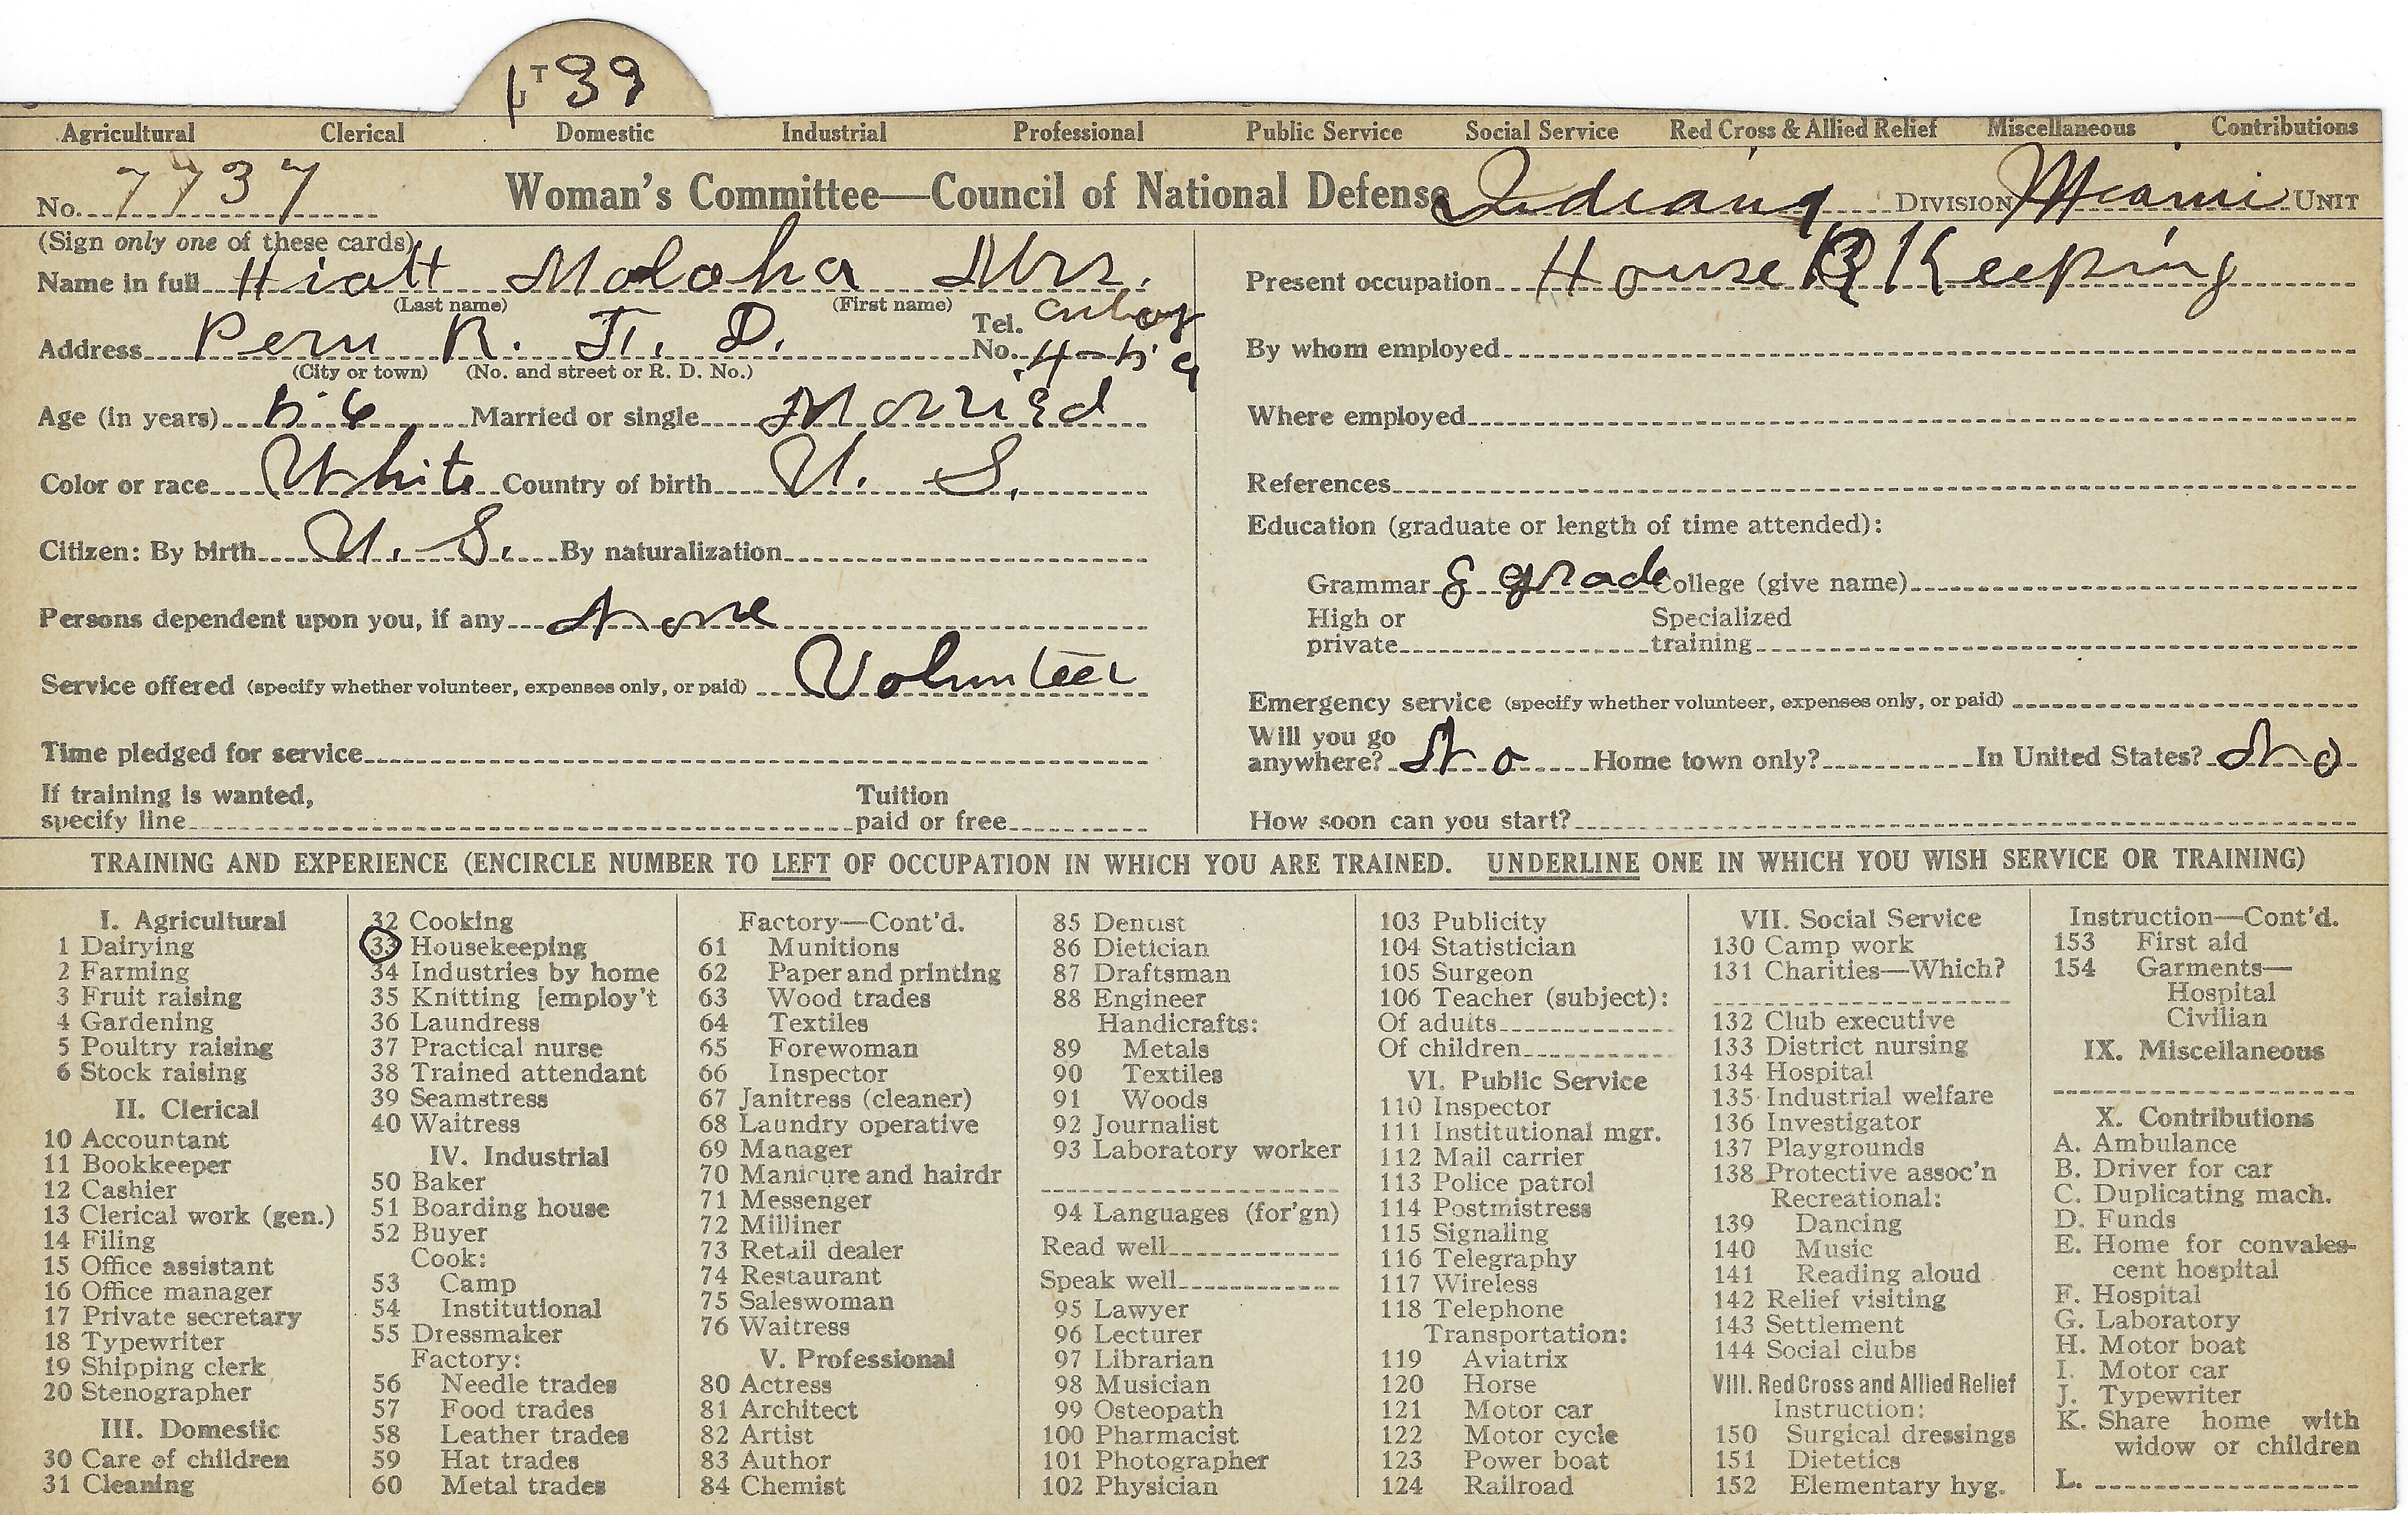 T 39
Agricultural Clerical Domestic Industrial Professional Public Service Social Service Red Cross & Allied Relief Miscellaneous Contributions
No. 7737 Woman's Committee—Council of National Defense Indiana DIVISION Miami UNIT
(Sign only one of these cards)
Name in full Hiatt Moloha Mrs.
(Last name) (First name)
Address Peru R. F. D. Tel. No. 4-59
(City or town) (No. and street or R. D. No.)
Age (in years) 56 Married or single Married
Color or race White Country of birth U. S.
Citizen: By birth U. S. By naturalization
Persons dependent upon you, if any None
Service offered (specify whether volunteer, expenses only, or paid) Volunteer
Time pledged for service
If training is wanted, specify line Tuition paid or free
Present occupation House Keeping
By whom employed
Where employed
References
Education (graduate or length of time attended):
Grammar 8 grade College (give name)
High or private Specialized training
Emergency service (specify whether volunteer, expenses only, or paid)
Will you go anywhere? No Home town only? In United States? No
How soon can you start?
TRAINING AND EXPERIENCE (ENCIRCLE NUMBER TO LEFT OF OCCUPATION IN WHICH YOU ARE TRAINED. UNDERLINE ONE IN WHICH YOU WISH SERVICE OR TRAINING)
I. Agricultural
1 Dairying
2 Farming
3 Fruit raising
4 Gardening
5 Poultry raising
6 Stock raising
II. Clerical
10 Accountant
11 Bookkeeper
12 Cashier
13 Clerical work (gen.)
14 Filing
15 Office assistant
16 Office manager
17 Private secretary
18 Typewriter
19 Shipping clerk
20 Stenographer
III. Domestic
30 Care of children
31 Cleaning
32 Cooking
33 Housekeeping
34 Industries by home
35 Knitting [employ't
36 Laundress
37 Practical nurse
38 Trained attendant
39 Seamstress
40 Waitress
IV. Industrial
50 Baker
51 Boarding house
52 Buyer
Cook:
53 Camp
54 Institutional
55 Dressmaker
Factory:
56 Needle trades
57 Food trades
58 Leather trades
59 Hat trades
60 Metal trades
Factory—Cont'd.
61 Munitions
62 Paper and printing
63 Wood trades
64 Textiles
65 Forewoman
66 Inspector
67 Janitress (cleaner)
68 Laundry operative
69 Manager
70 Manicure and hairdr
71 Messenger
72 Milliner
73 Retail dealer
74 Restaurant
75 Saleswoman
76 Waitress
V. Professional
80 Actress
81 Architect
82 Artist
83 Author
84 Chemist
85 Dentist
86 Dietician
87 Draftsman
88 Engineer
Handicrafts:
89 Metals
90 Textiles
91 Woods
92 Journalist
93 Laboratory worker
94 Languages (for'gn)
Read well
Speak well
95 Lawyer
96 Lecturer
97 Librarian
98 Musician
99 Osteopath
100 Pharmacist
101 Photographer
102 Physician
103 Publicity
104 Statistician
105 Surgeon
106 Teacher (subject):
Of adults
Of children
VI. Public Service
110 Inspector
111 Institutional mgr.
112 Mail carrier
113 Police patrol
114 Postmistress
115 Signaling
116 Telegraphy
117 Wireless
118 Telephone
Transportation:
119 Aviatrix
120 Horse
121 Motor car
122 Motor cycle
123 Power boat
124 Railroad
VII. Social Service
130 Camp work
131 Charities—Which?
132 Club executive
133 District nursing
134 Hospital
135 Industrial welfare
136 Investigator
137 Playgrounds
138 Protective assoc'n
Recreational:
139 Dancing
140 Music
141 Reading aloud
142 Relief visiting
143 Settlement
144 Social clubs
VIII. Red Cross and Allied Relief
Instruction:
150 Surgical dressings
151 Dietetics
152 Elementary hyg.
Instruction—Cont'd.
153 First aid
154 Garments—
Hospital
Civilian
IX. Miscellaneous
X. Contributions
A. Ambulance
B. Driver for car
C. Duplicating mach.
D. Funds
E. Home for convales-
cent hospital
F. Hospital
G. Laboratory
H. Motor boat
I. Motor car
J. Typewriter
K. Share home with
widow or children
L.